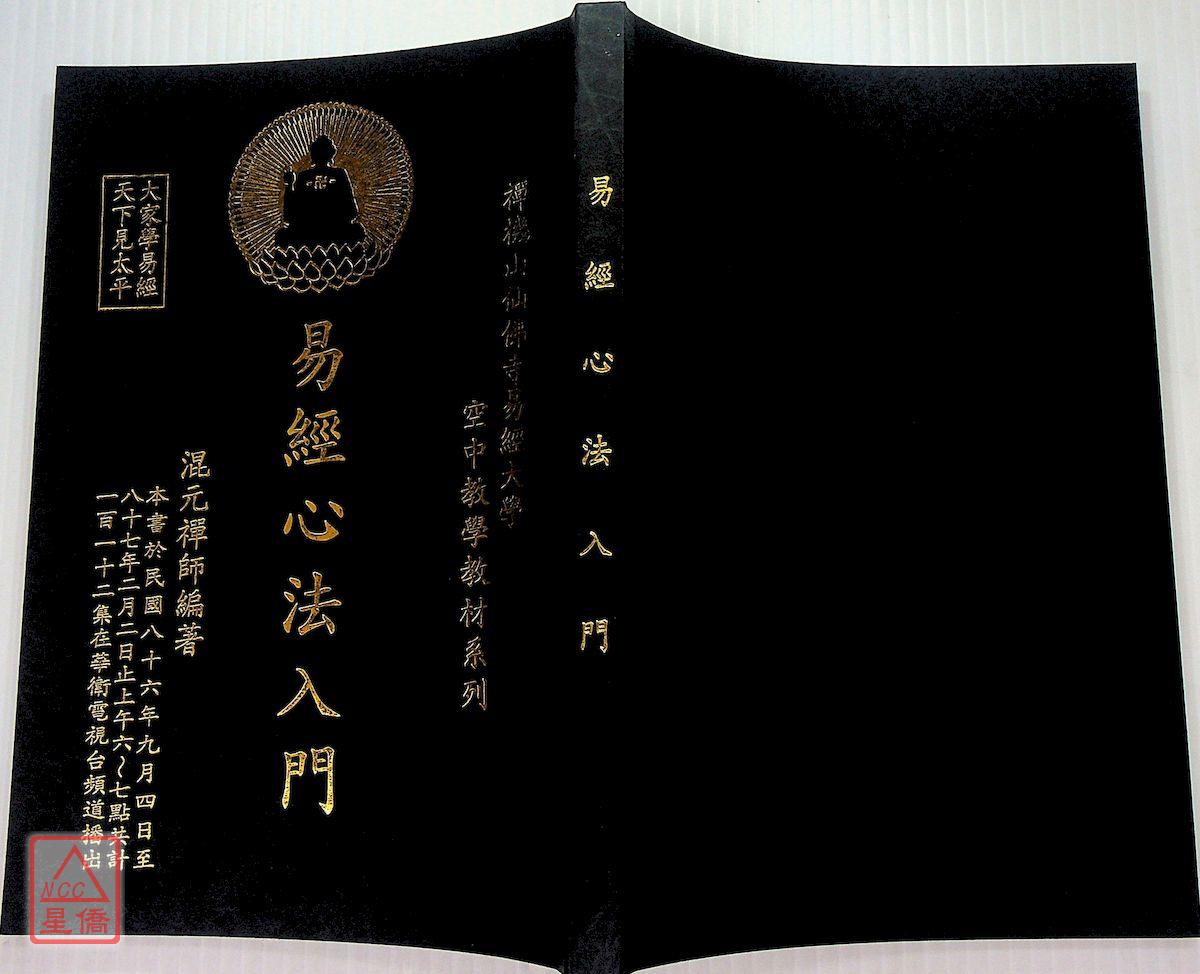 禪機山仙佛寺易經大學
空中教學教材系列
易經心法入門
混元禪師編著
本書於民國八十六年九月四日至
八十七年二月二日止上午六~七點共計
一百一十二集在華衛電視台頻道播出
大家學易經
天下見太平
易經心法入門
NCC
星僑